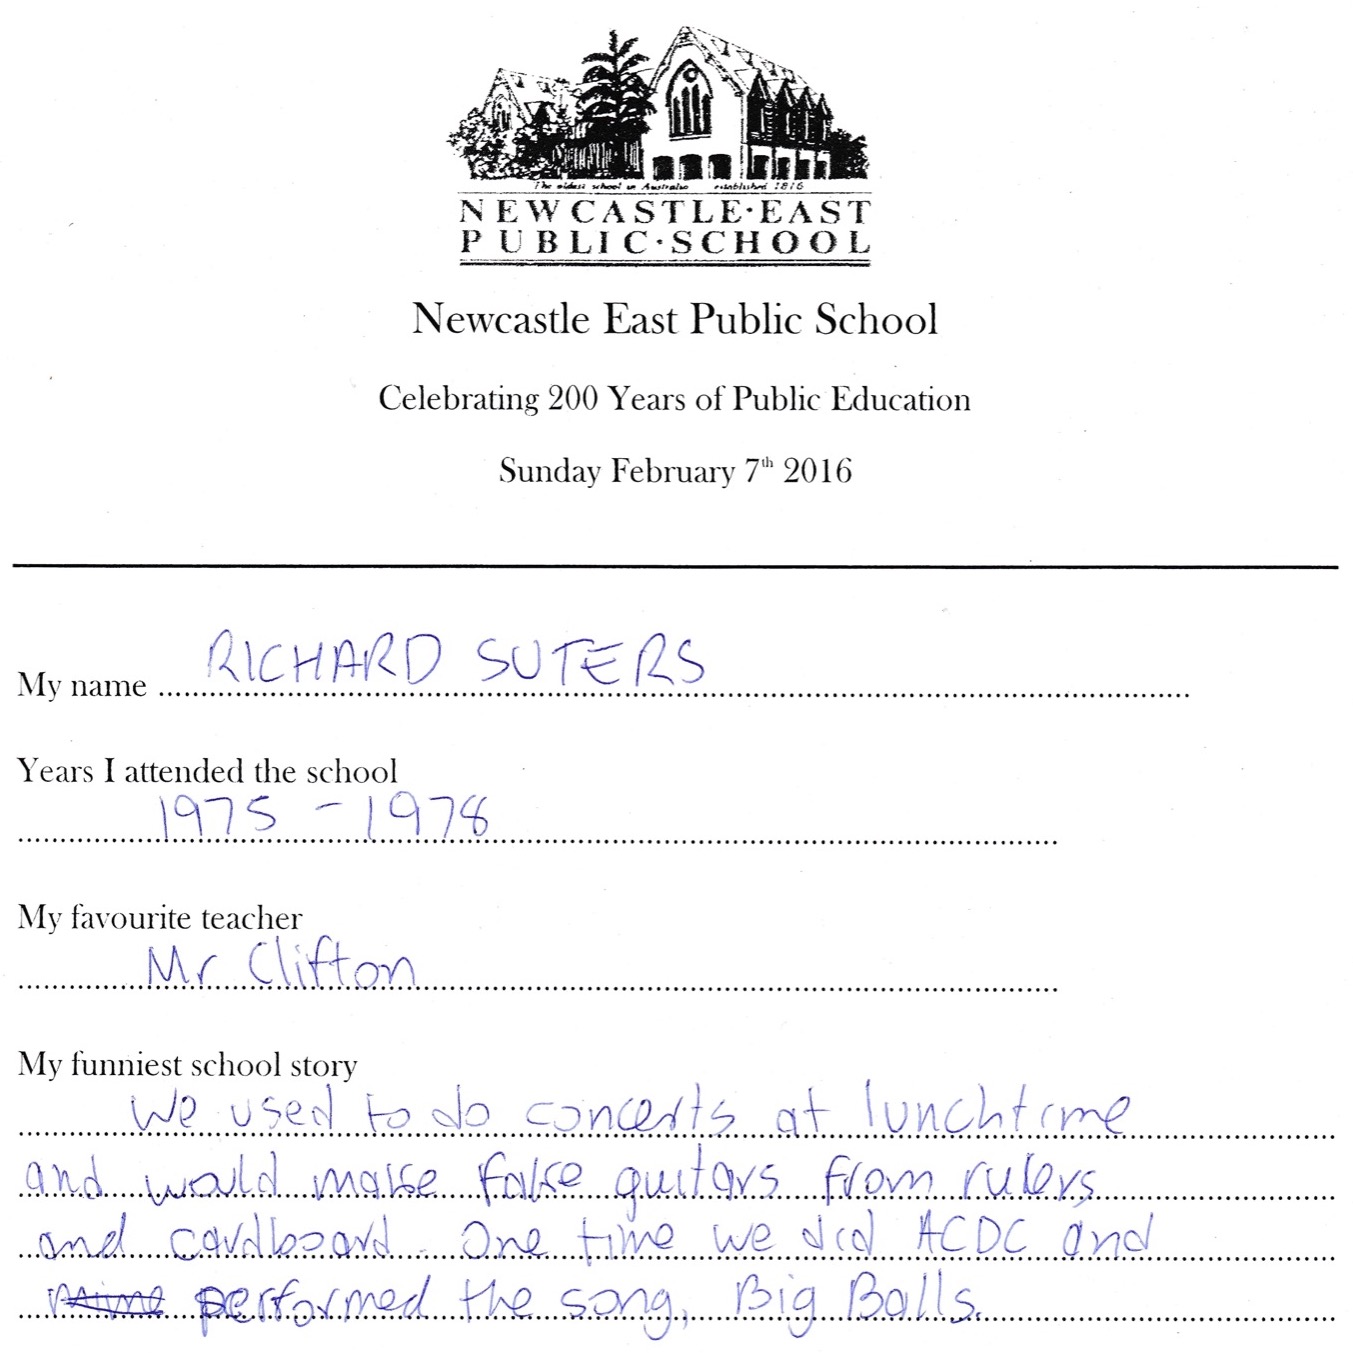 The oldest school in Australia established 1816
NEWCASTLE·EAST
PUBLIC·SCHOOL
Newcastle East Public School
Celebrating 200 Years of Public Education
Sunday February 7th 2016
My name RICHARD SUTERS
Years I attended the school
1975 - 1978
My favourite teacher
Mr Clifton
My funniest school story
We used to do concerts at lunchtime
and would make fake guitars from rulers
and cardboard. One time we did ACDC and
mime performed the song, Big Balls.